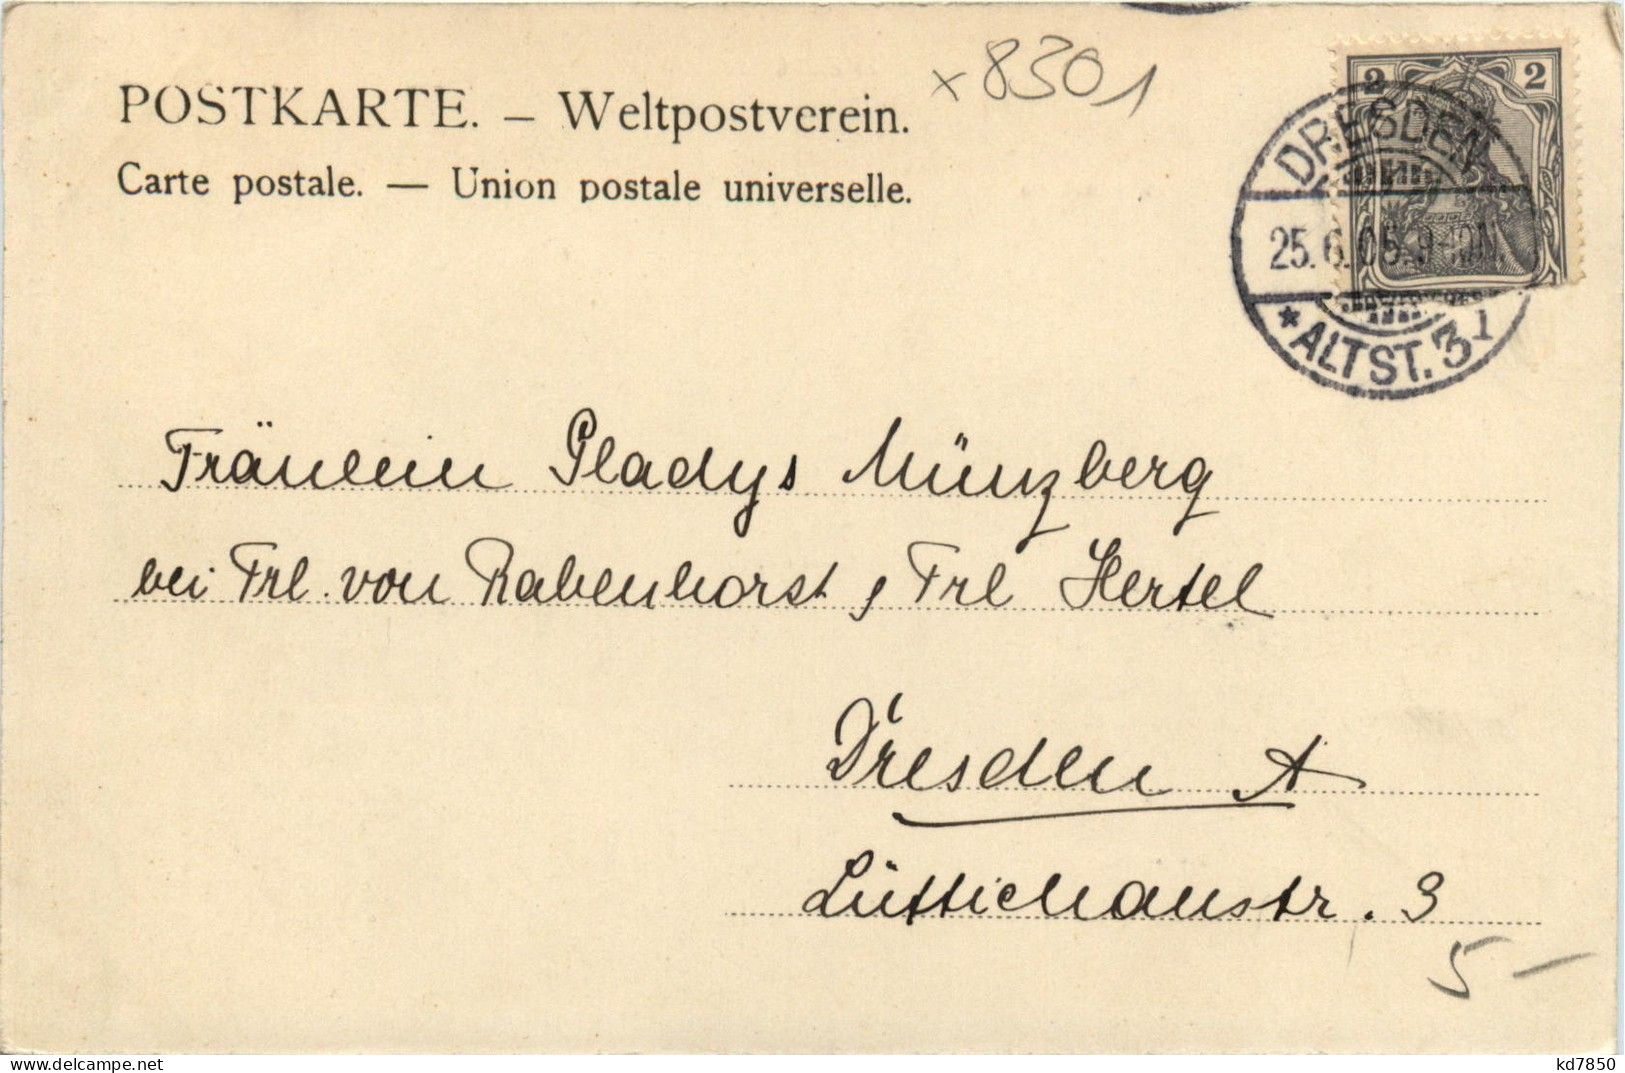 POSTKARTE. – Weltpostverein.
Carte postale. — Union postale universelle.
x 8301
2 2
DRESDEN
25.6.05.9-10N
* ALTST. 3 1
Fräulein Gladys Münzberg
bei Frl. von Rabenhorst, Frl Hertel
Dresden A
Lüttichaustr. 3
5 –
kd7850